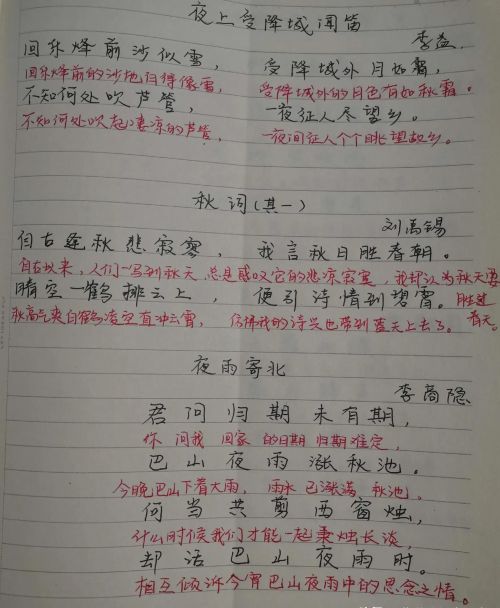 夜上受降城闻笛
李益
回乐烽前沙似雪， 受降城外月如霜，
回乐烽前的沙地白得像雪， 受降城外的月色有如秋霜。
不知何处吹芦管， 一夜征人尽望乡。
不知何处吹起凄凉的芦管， 一夜间征人个个眺望故乡。
秋词（其一）
刘禹锡
自古逢秋悲寂寥， 我言秋日胜春朝。
自古以来，人们一写到秋天总是感叹它的悲凉寂寞，我却认为秋天要
晴空一鹤排云上， 便引诗情到碧霄。胜过
秋高气爽白鹤凌空直冲云霄， 仿佛我的诗兴也带到蓝天上去了。 春天。
夜雨寄北
李商隐
君问归期未有期，
你问我回家的日期归期难定，
巴山夜雨涨秋池。
今晚巴山下着大雨， 雨水已涨满秋池。
何当共剪西窗烛，
什么时候我们才能一起秉烛长谈，
却话巴山夜雨时。
相互倾诉今宵巴山夜雨中的思念之情。